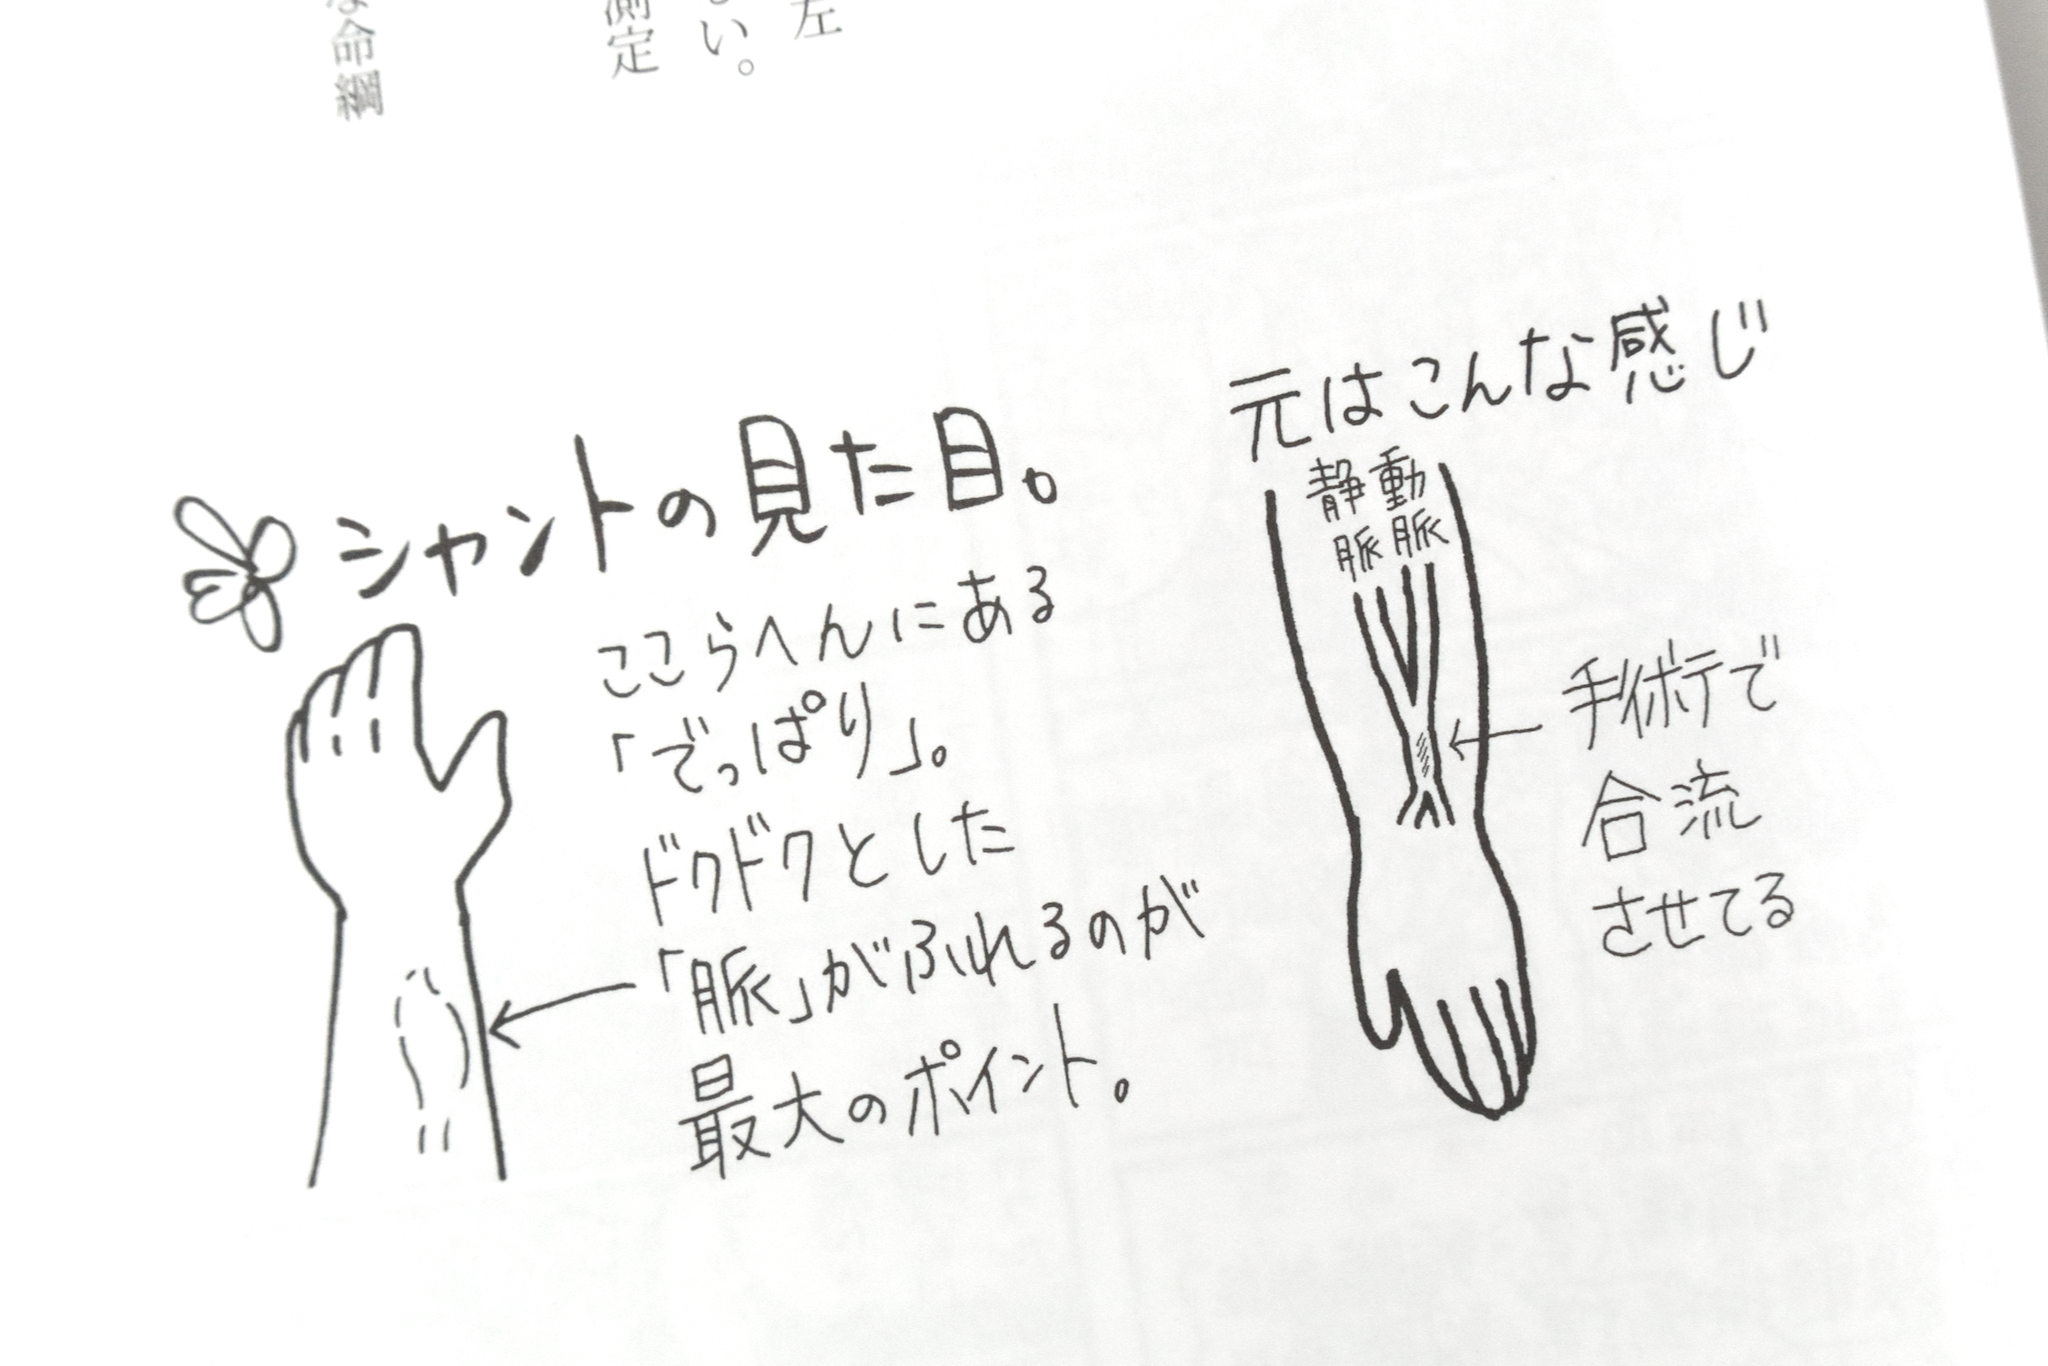 左
い。
測定
命綱
シャントの見た目。
ここらへんにある
「でっぱり」。
ドクドクとした
「脈」がふれるのが
最大のポイント。
元はこんな感じ
静脈
動脈
手術で
合流
させてる